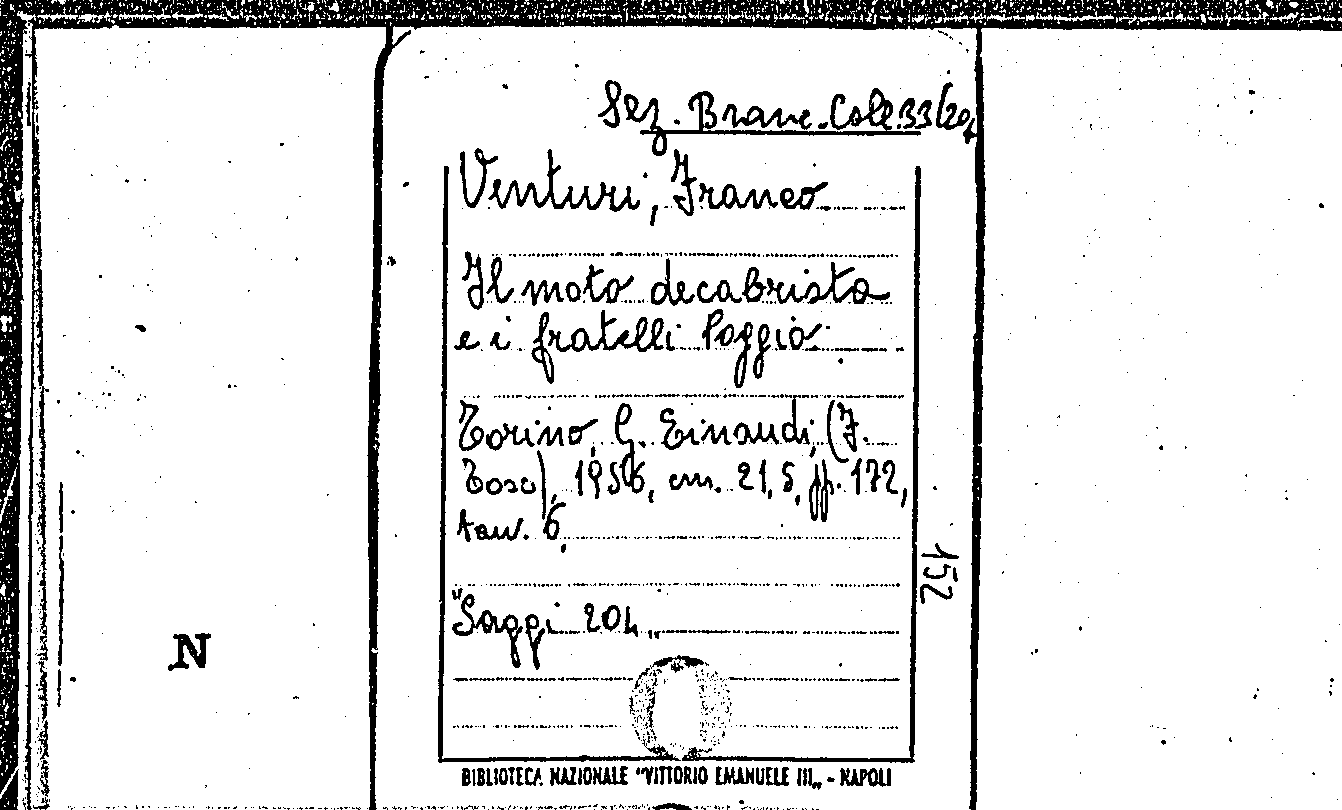 Sez. Branc. Coll. 33 (204
Venturi, Franco
Il moto decabrista
e i fratelli Poggio.
Torino, G. Einaudi, (F.
Toso), 1956, cm. 21,5, pp. 172,
tav. 6.
152
"Saggi 204"
N
BIBLIOTECA NAZIONALE "VITTORIO EMANUELE III" - NAPOLI